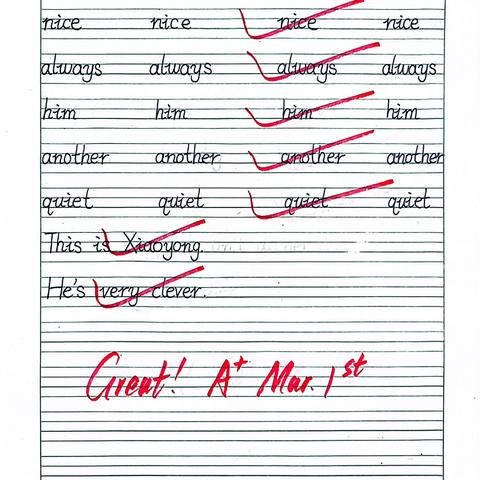 nice nice nice nice
always always always always
him him him him
another another another another
quiet quiet quiet quiet
This is Xiaoyong.
He's very clever.
Great! A+ Mar. 1st